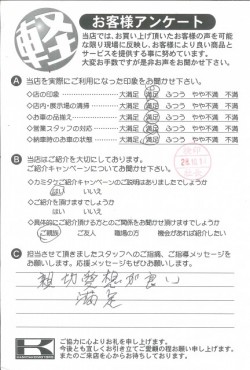 軽
お客様アンケート
当店では、お買い上げ頂いたお客様の声を可能
な限り現場に反映し、お客様により良い商品と
サービスを提供する事に努めています。
大変お手数ですが是非お聞かせ下さい。
A 当店を実際にご利用になった印象をお聞かせ下さい。
◇店の印象 大満足 満足 ふつう やや不満 不満
◇店内・展示場の清掃 大満足 満足 ふつう やや不満 不満
◇お車の品揃え 大満足 満足 ふつう やや不満 不満
◇営業スタッフの対応 大満足 満足 ふつう やや不満 不満
◇納車時のお車の状態 大満足 満足 ふつう やや不満 不満
B 当店はご紹介を大切にしております。
ご紹介キャンペーンについてお聞かせ下さい。
◇カミタケご紹介キャンペーンのご説明はありましたでしょうか
はい いいえ
◇ご紹介を頂けますでしょうか
はい いいえ
◇具体的にご紹介頂ける方とのご関係をお聞かせ頂けますでしょうか
ご親族 ご友人 職場の方 機会があれば紹介したい
C 担当させて頂きましたスタッフへのご指摘、ご指導メッセージを
お願いします。応援メッセージもぜひお願いします。
親切愛想が良い
満足
K
ご協力に心よりお礼を申し上げます。
今後とも宜しくお引き立てご愛顧の程お願い申し上げます。
またのご来店を心からお待ちしております。